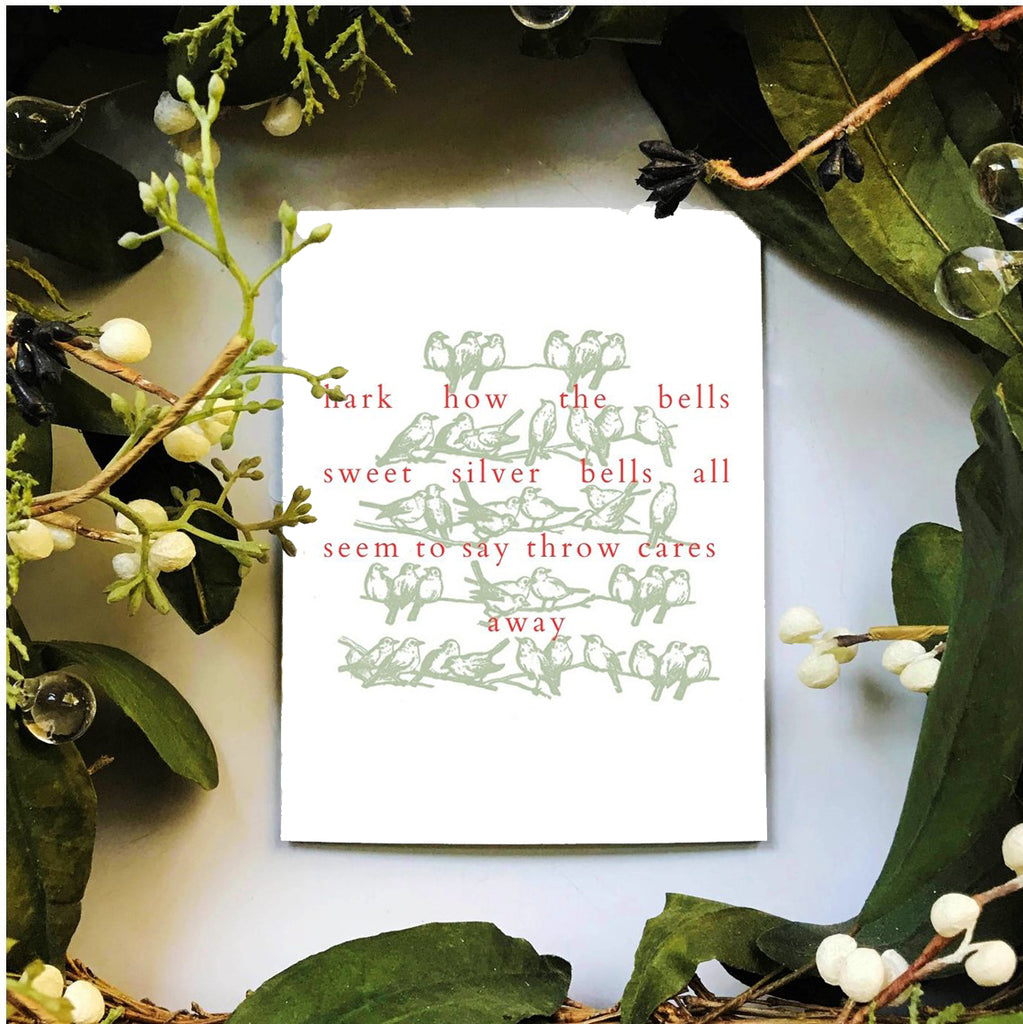 hark how the bells
sweet silver bells all
seem to say throw cares
away